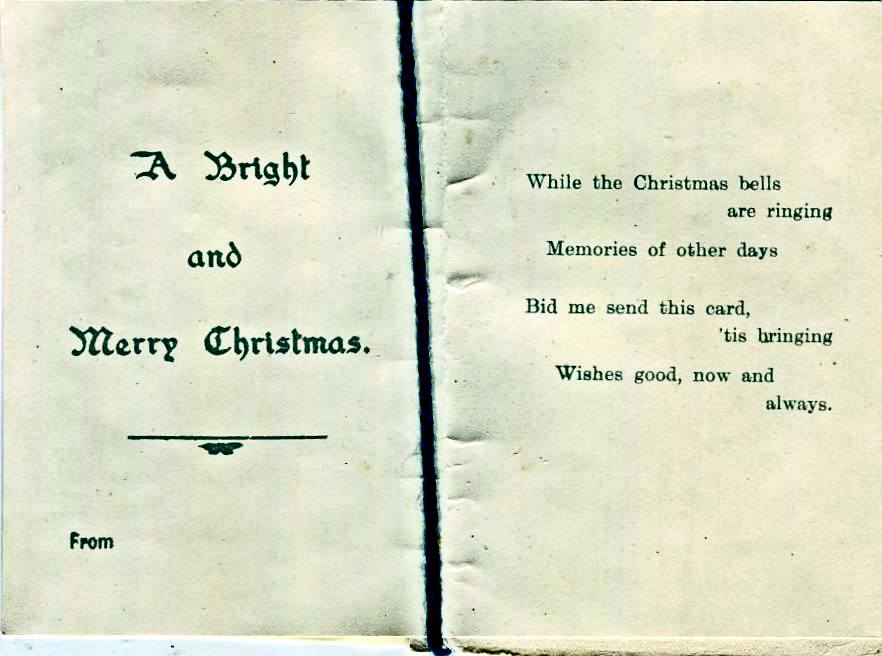 A Bright
and
Merry Christmas.
From
While the Christmas bells
are ringing
Memories of other days
Bid me send this card,
'tis bringing
Wishes good, now and
always.